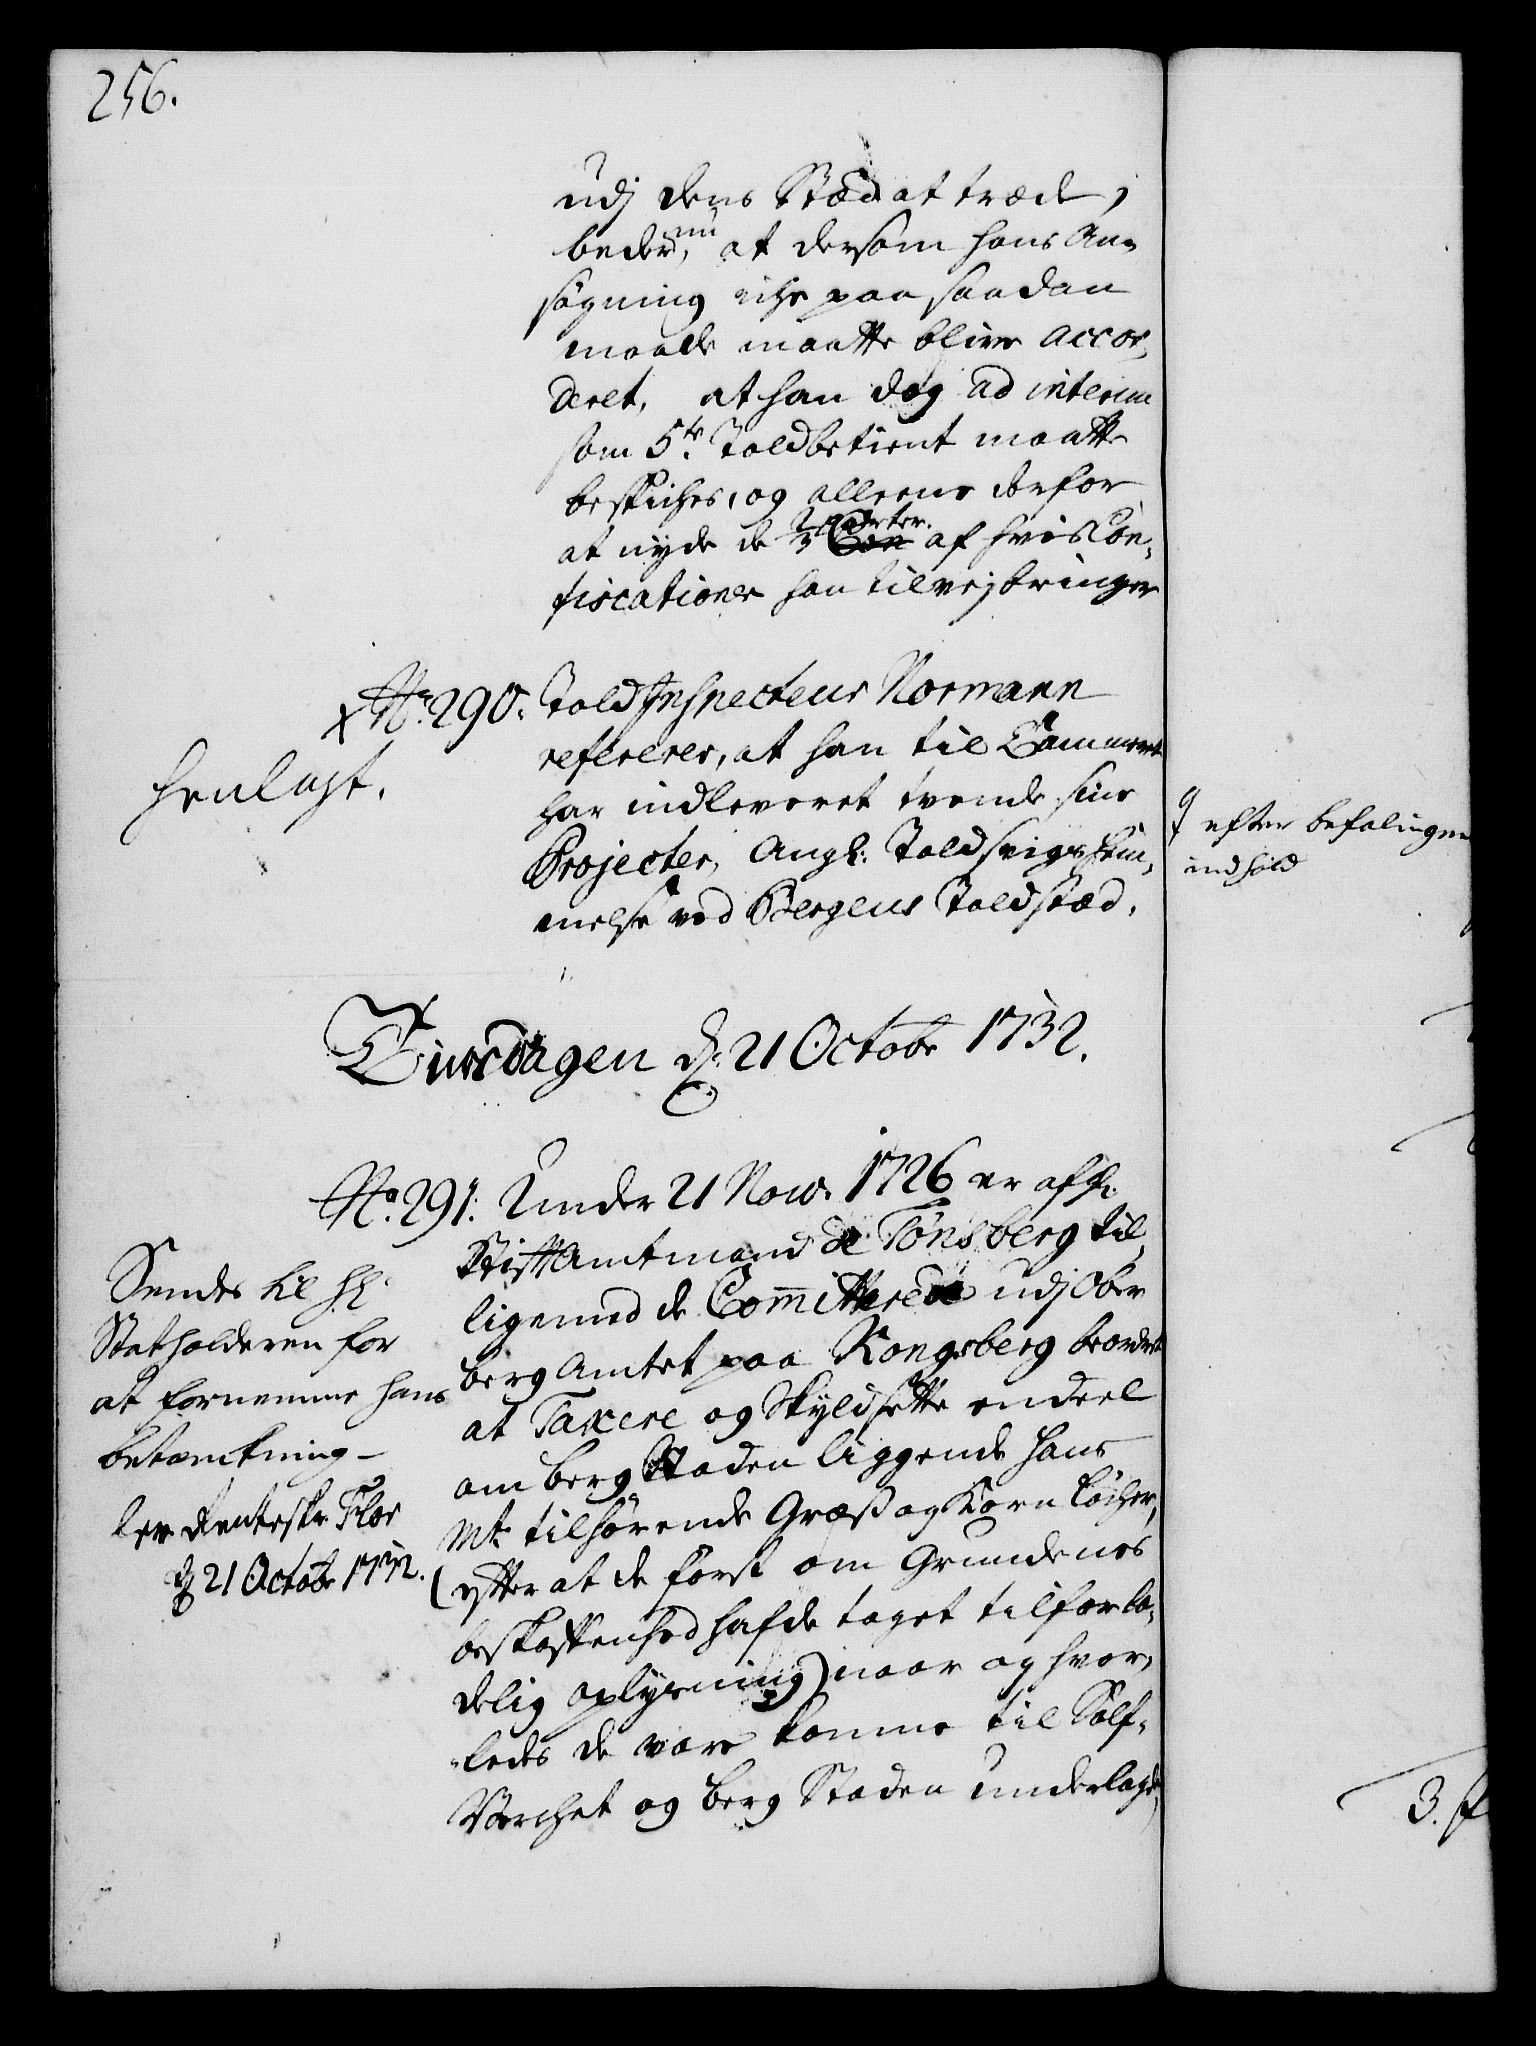 256.
udj dens Stæd at træde,
beder, nu at dersom hans An-
søgning iche paa saadan
maade maatte blive accor-
deret, at han dog ad interim
som 5te Toldbetient maatte
beskiches, og alleene derfor
at nyde de 2/3 parter af hvis Con-
fiscationer han tilvejebringer
x No. 290. Told Inspecteur Normann
refererer, at han til Cammeret
har indleveret tvende sine
Projecter, Angl: Toldsvigs hem-
melse ved Bergens Toldstæd.
henlagt.
Tiirsdagen d. 21 Octobr 1732.
No. 291. Under 21 Nov. 1726 er afg:
Stiftamtmand de Tønsberg til
ligemed de Committerede udj Ober
berg Amtet paa Kongsberg beordret
at Taxere og Skyldsette endeel
om berg Staden liggende hans
Mt. tilhørende Græs og Korn Løcher,
(efter at de først om Grundenes
beskaffenhed hafde taget tilforla-
delig oplysning) naar og hvor-
ledes de vare komne til Sølf-
Verchet og berg Staden underlagde,
Sendes til Hl.
Statholderen for
at fornemme hans
betænkning -
lev. Renteskr. Flor
d. 21 Octobr 1732.
efter befalingens
indhold
3. f